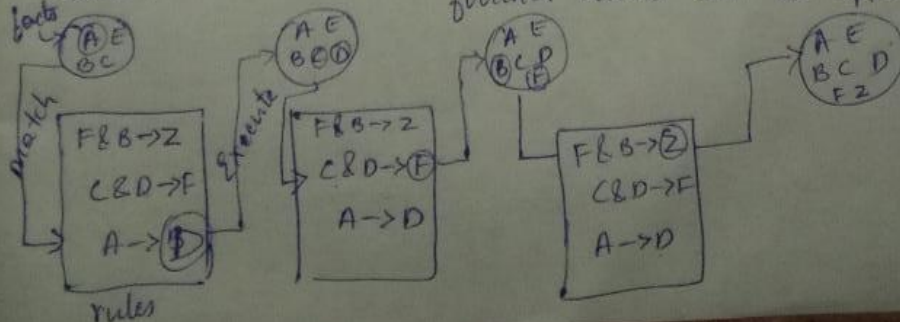 facts
A E
B C
Match
F&B->Z
C&D->F
A->D
rules
Execute
A E
B C D
F&B->Z
C&D->F
A->D
A E
B C D
F
F&B->Z
C&D->F
A->D
A E
B C D
F Z